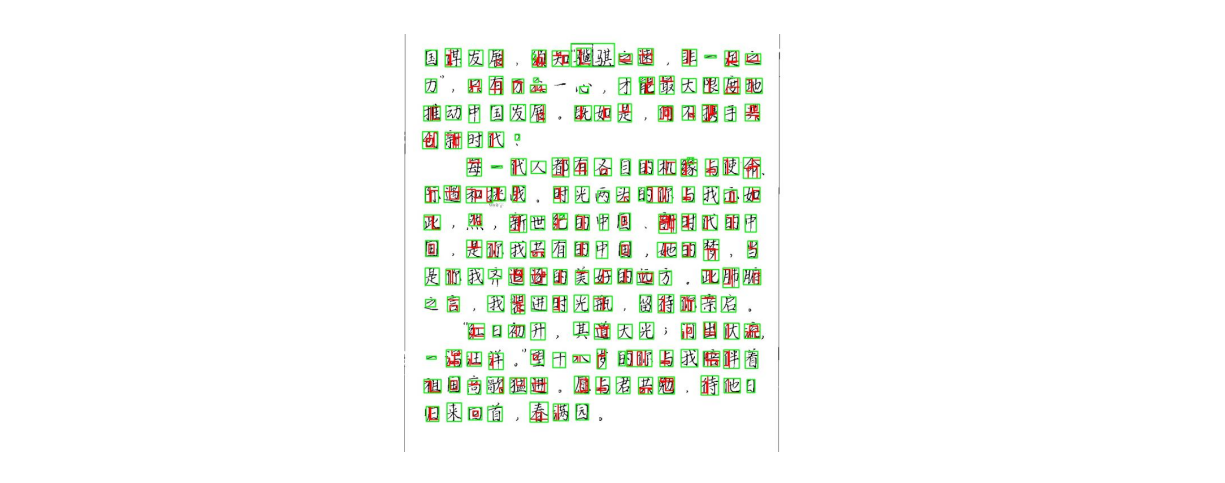 国谋发展，须知"骐骥之速，非一足之
力"，只有万众一心，才能最大限度地
推动中国发展。既如是，何不携手共
创新时代？
每一代人都有各自的机缘与使命、
际遇和挑战。时光两头的你与我亦如
此，然，新世纪的中国、新时代的中
国，是你我共有的中国，她的梦，当
是你我齐邀途的美好的远方。此肺腑
之言，我装进时光瓶，留待你亲启。
"红日初升，其道大光；河出伏流，
一泻汪洋。"望十八岁的你与我陪伴着
祖国高歌猛进。愿与君共勉，待他日
归来回首，春满园。